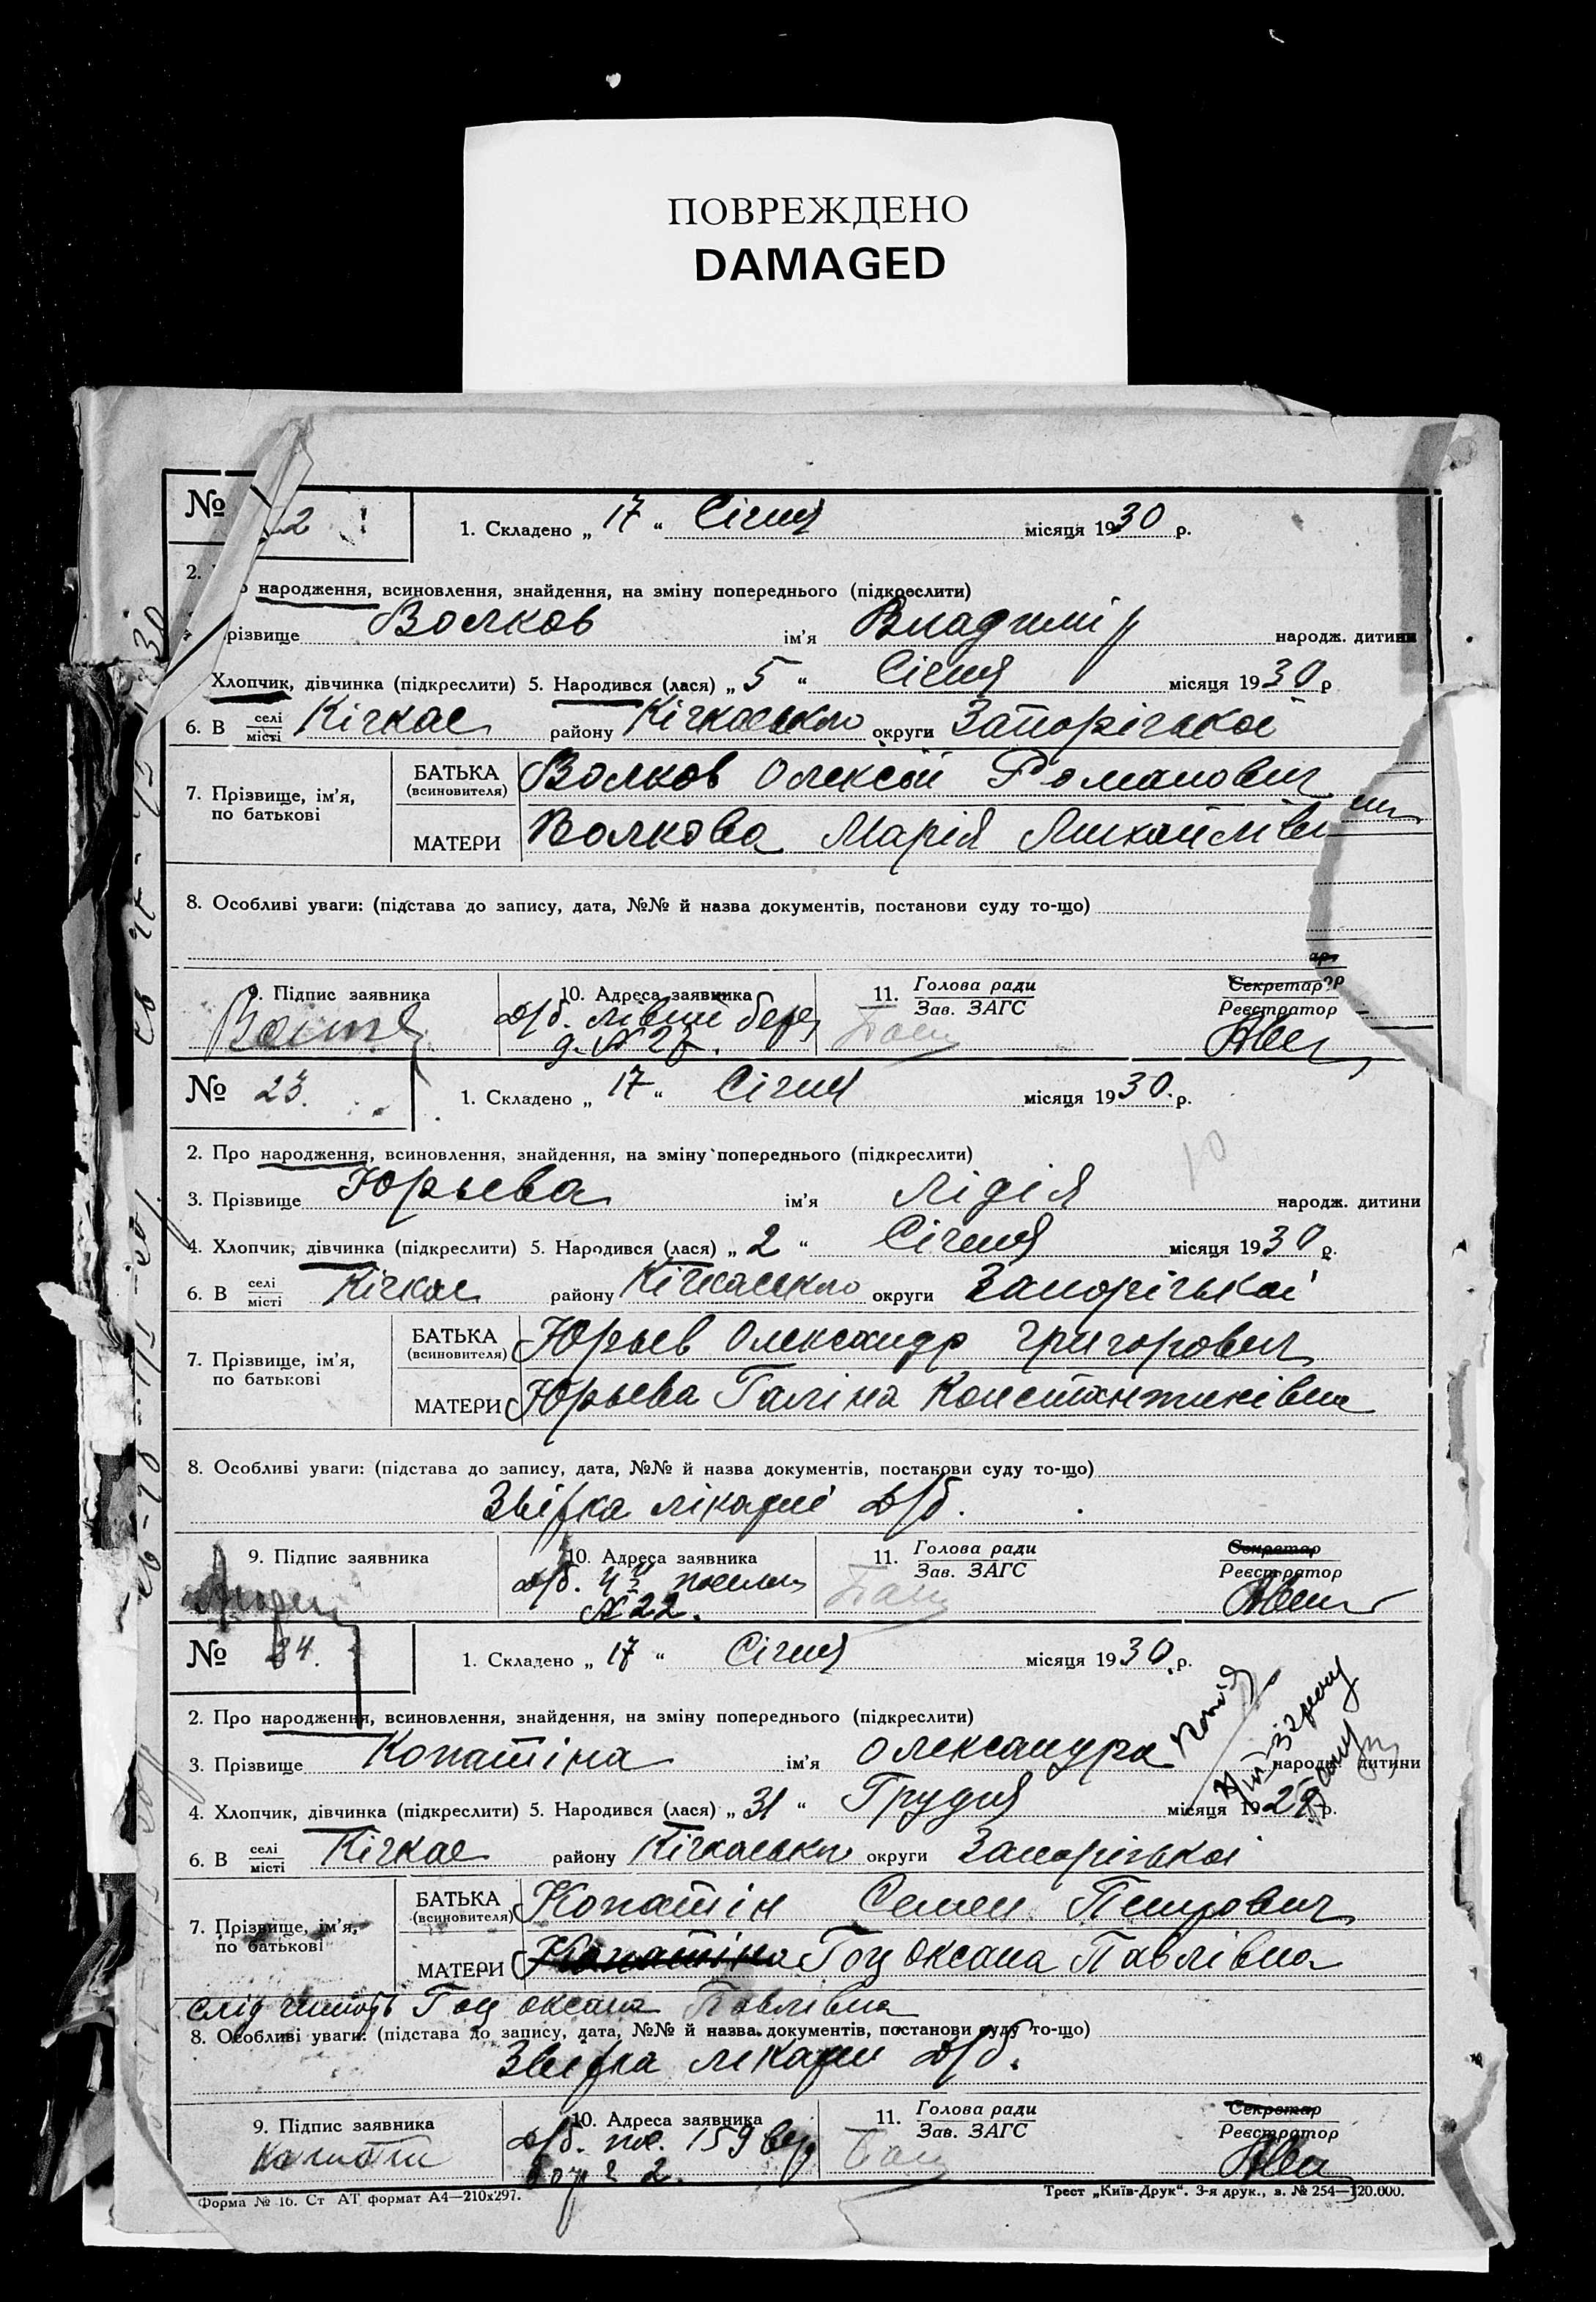 ПОВРЕЖДЕНО
DAMAGED
№ 2
1. Складено „ 17 “ Січня місяця 1930 р.
2. народження, всиновлення, знайдення, на зміну попереднього (підкреслити)
різвище Волков ім’я Владимір народж. дитини
Хлопчик, дівчинка (підкреслити) 5. Народився (лася) „ 5 “ Січня місяця 1930 р
6. В селі місті Кічкас району Кічкаського округи Запорізької
7. Прізвище, ім’я, по батькові
БАТЬКА (всиновителя) Волков Олексій Романович
МАТЕРИ Волкова Марія Михайлівн
8. Особливі уваги: (підстава до запису, дата, №№ й назва документів, постанови суду то-що)
9. Підпис заявника 10. Адреса заявника 11. Голова ради Зав. ЗАГС Секретар Реєстратор
Д/б. лівий берег
№ 23. 1. Складено „ 17 “ Січня місяця 1930. р.
2. Про народження, всиновлення, знайдення, на зміну попереднього (підкреслити)
10
3. Прізвище Юрьева ім’я Лідія народж. дитини
4. Хлопчик, дівчинка (підкреслити) 5. Народився (лася) „ 2 “ Січня місяця 1930 р.
6. В селі місті Кічкас району Кічкаського округи Запорізької
7. Прізвище, ім’я, по батькові
БАТЬКА (всиновителя) Юрьев Олександр Григорович
МАТЕРИ Юрьева Галіна Константинівна
8. Особливі уваги: (підстава до запису, дата, №№ й назва документів, постанови суду то-що)
лікарні Д/б.
9. Підпис заявника 10. Адреса заявника 11. Голова ради Зав. ЗАГС Секретар Реєстратор
Д/б.
№ 22.
№ 24. 1. Складено „ 17 “ Січня місяця 1930. р.
2. Про народження, всиновлення, знайдення, на зміну попереднього (підкреслити)
3. Прізвище Копатіна ім’я Олександра народж. дитини
4. Хлопчик, дівчинка (підкреслити) 5. Народився (лася) „ 31 “ Грудня місяця 1929 р.
6. В селі місті Кічкас району Кічкаського округи Запорізької
7. Прізвище, ім’я, по батькові
БАТЬКА (всиновителя) Копатін Семен Петрович
МАТЕРИ Копатіна Гоц Оксана Павлівна
слід читать Гоц Оксана Павлівна
8. Особливі уваги: (підстава до запису, дата, №№ й назва документів, постанови суду то-що)
лікарні Д/б.
9. Підпис заявника 10. Адреса заявника 11. Голова ради Зав. ЗАГС Секретар Реєстратор
Д/б. 159
2.
Форма № 16. Ст АТ формат А4—210х297. Трест „Київ-Друк“. 3-я друк., з. № 254—120.000.